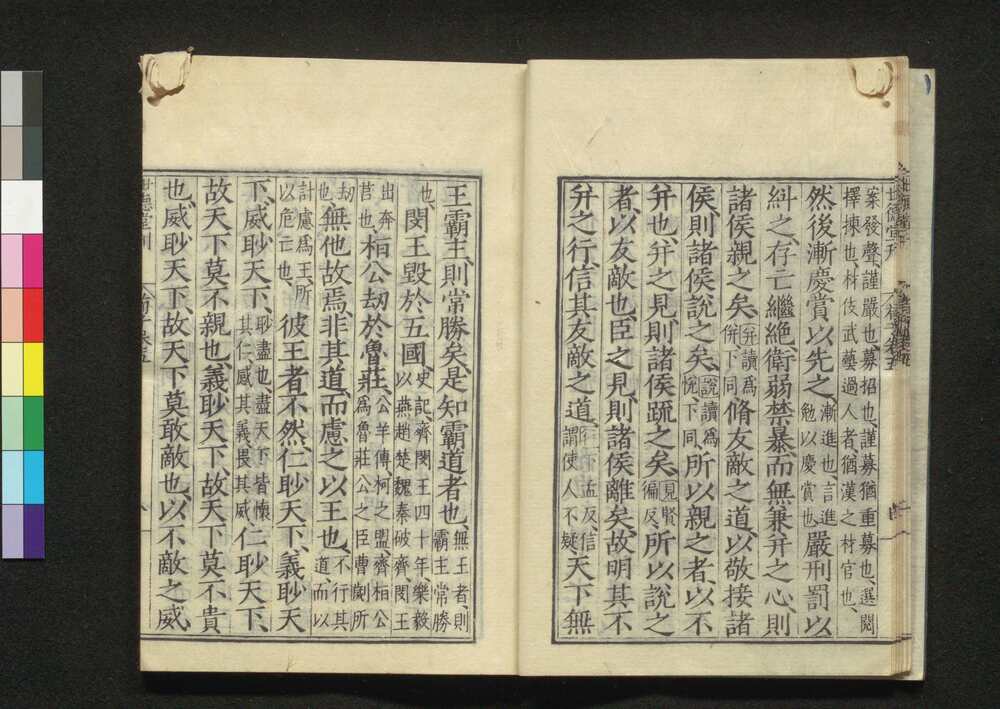 案發聲、謹嚴也、募招也、謹募猶重募也、選閱
擇揀也、材伎武藝過人者猶漢之材官也、
然後漸慶賞以先之、漸進也、言進勉以慶賞也、嚴刑罰以
糾之、存亡繼絶、衛弱禁暴、而無兼并之心、則
諸侯親之矣、并讀爲併、下同、脩友敵之道、以敬接諸
侯、則諸侯說之矣、說讀爲悅、下同、所以親之者、以不
并也、并之見、則諸侯疏之矣、見賢徧反、所以說之
者、以友敵也、臣之見、則諸侯離矣、故明其不
并之行、信其友敵之道、行下孟反、信謂使人不疑、天下無
王霸主、則常勝矣、是知霸道者也、無王者、則霸主常勝
也、閔王毀於五國、史記、齊閔王四十年、樂毅以燕趙楚魏秦破齊、閔王
出奔莒也、桓公劫於魯莊、公羊傳、柯之盟、齊桓公爲魯莊公之臣曹劌所
劫也、無他故焉、非其道、而慮之以王也、不行其道、而以
計慮爲王、所以危亡也、彼王者不然、仁眇天下、義眇天
下、威眇天下、眇盡也、盡天下皆懷其仁、感其義、畏其威、仁眇天下、
故天下莫不親也、義眇天下、故天下莫不貴
也、威眇天下、故天下莫敢敵也、以不敵之威
世德堂刊